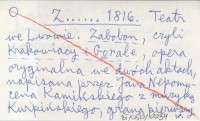 Z...... 1816. Teatr
we Lwowie. Zabobon, czyli
Krakowiacy i Górale, opera
oryginalna we dwóch aktach,
napisana przez Jana Nepomu-
cena Kamińskiego z muzyką
Kurpińskiego, grana pierwszy